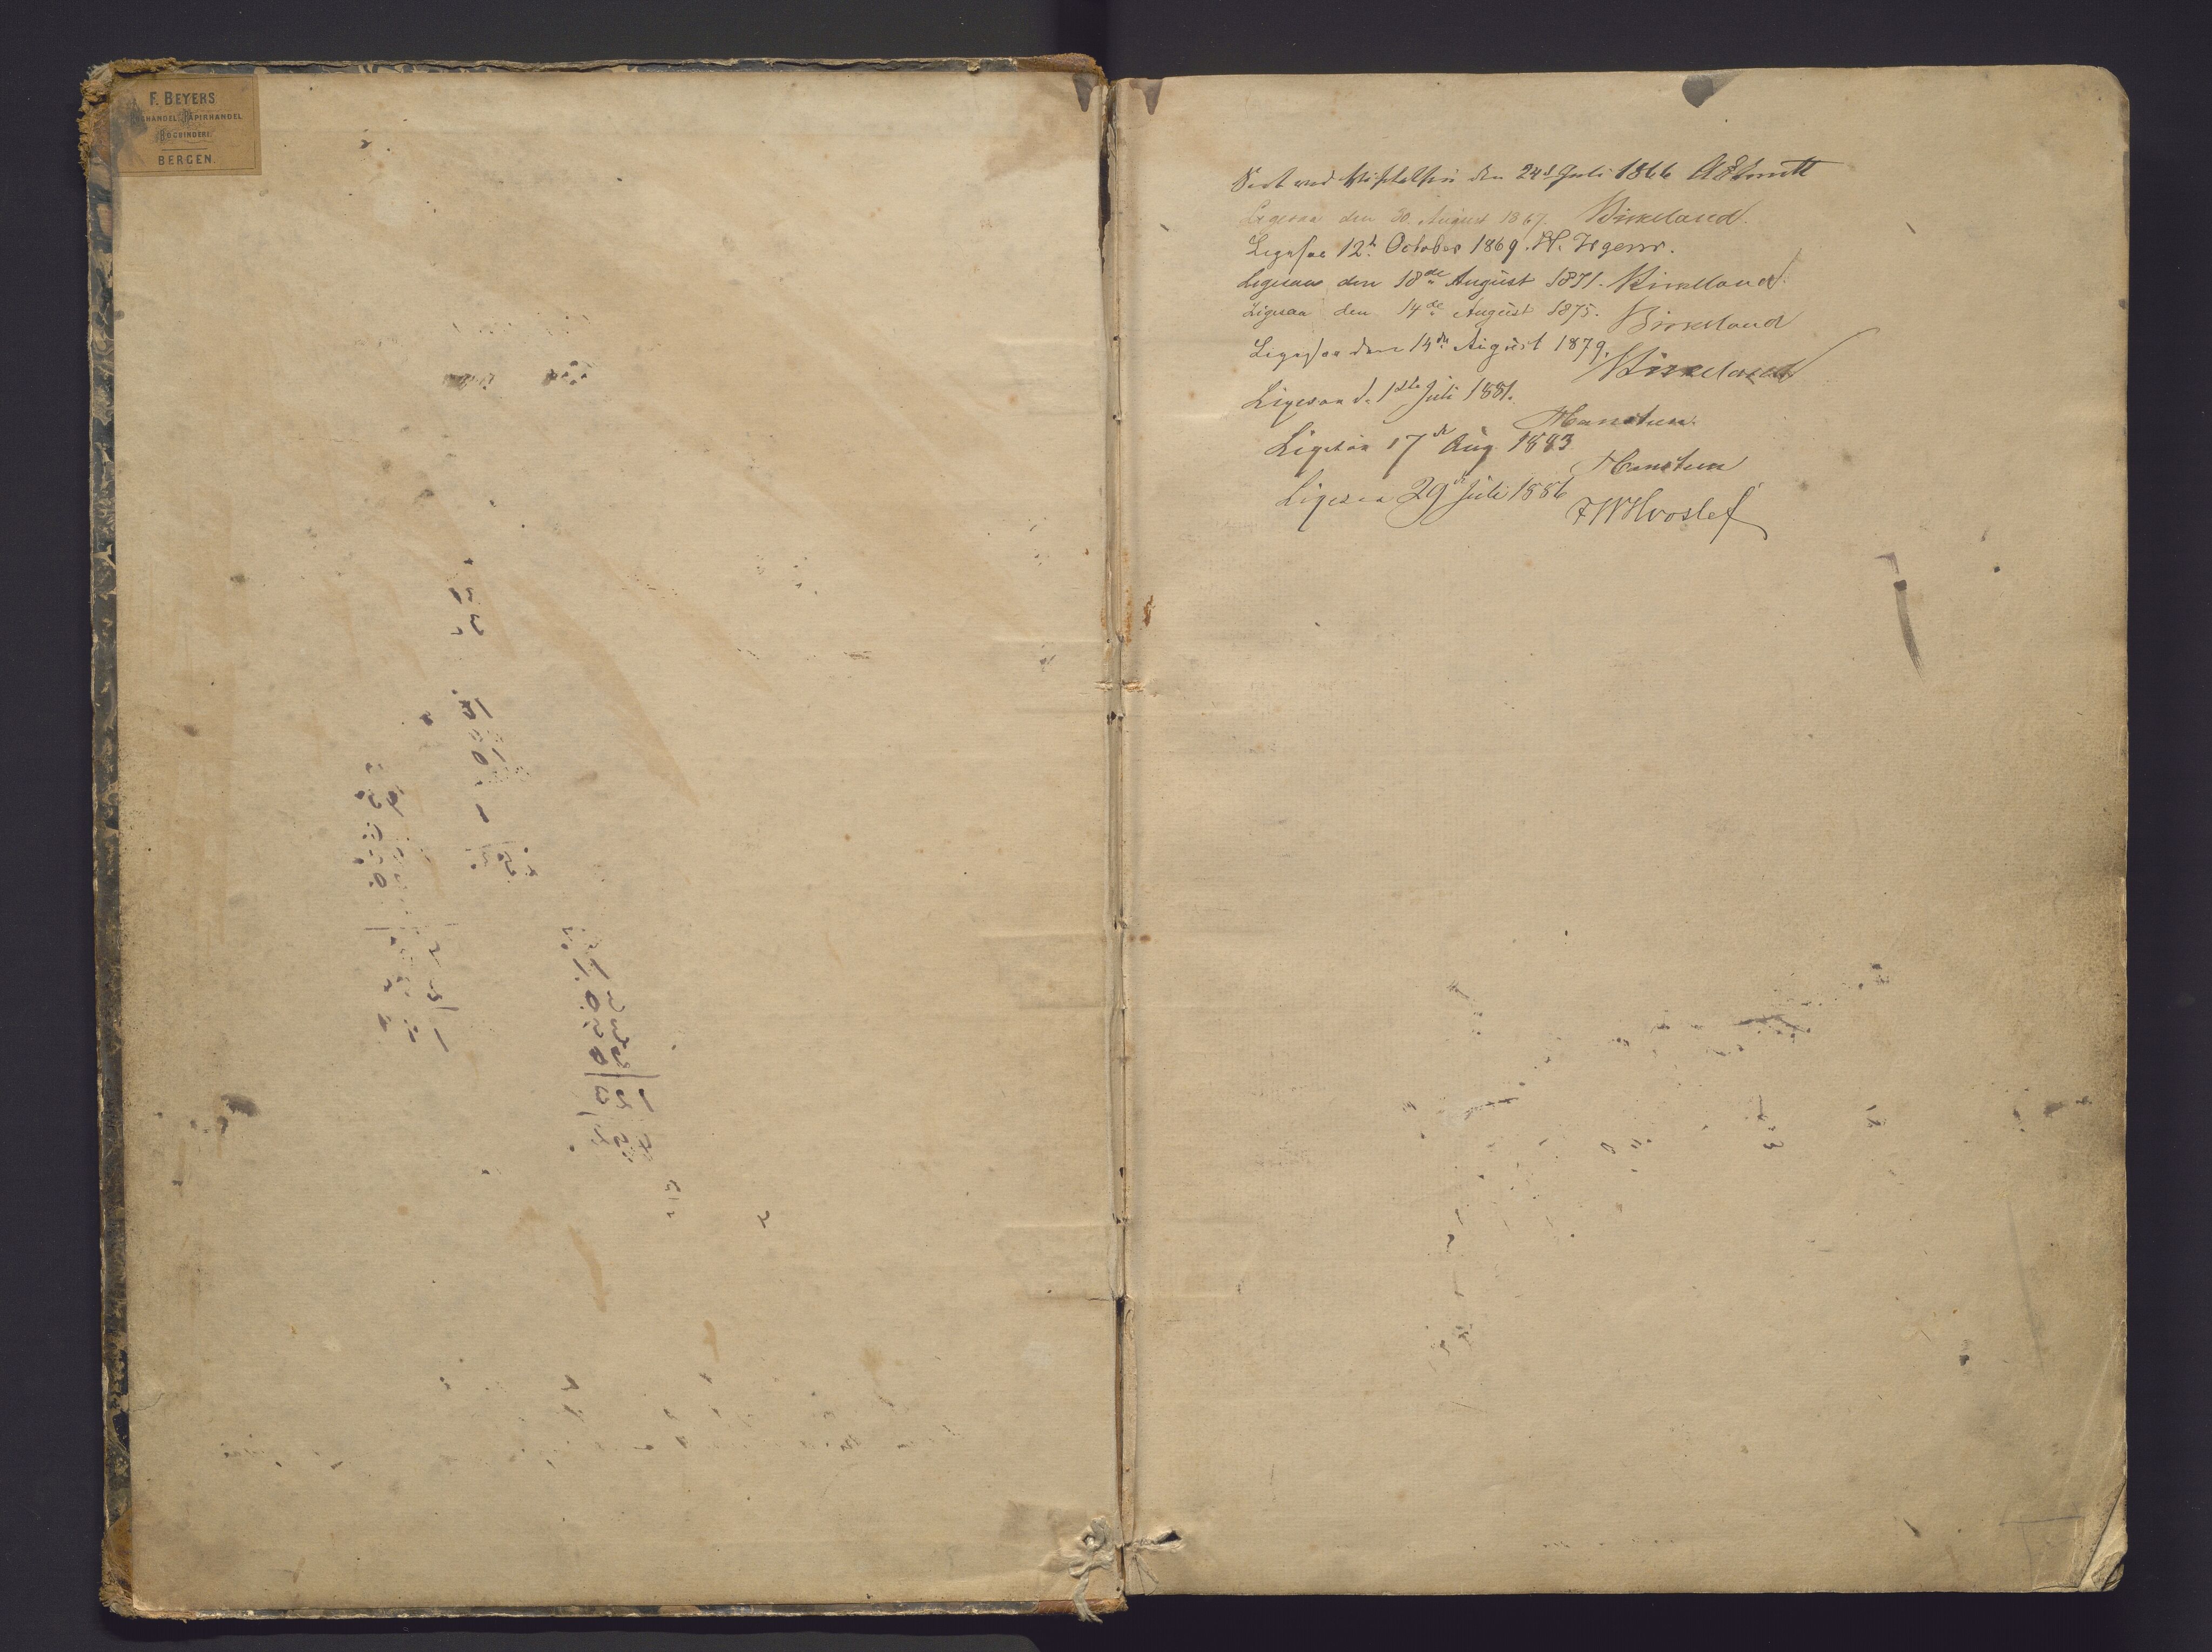 F. BEYERS
BOGHANDEL PAPIRHANDEL
BOGBINDERI
BERGEN.
Seet ved Visitatsen den 24d Juli 1866
Ligesaa den 30. August 1867. Birkeland.
Ligesaa 12te October 1869. W. Irgens.
Ligesaa den 18de August 1871. Birkeland.
Ligesaa den 14de August 1875. Birkeland
Ligesaa den 14de August 1879. Birkeland
Ligesaa d. 1ste Juli 1881.
Hanstun.
Ligesaa 17de Aug 1883
Hanstun
Ligesaa 29de Juli 1886
FWHvoslef